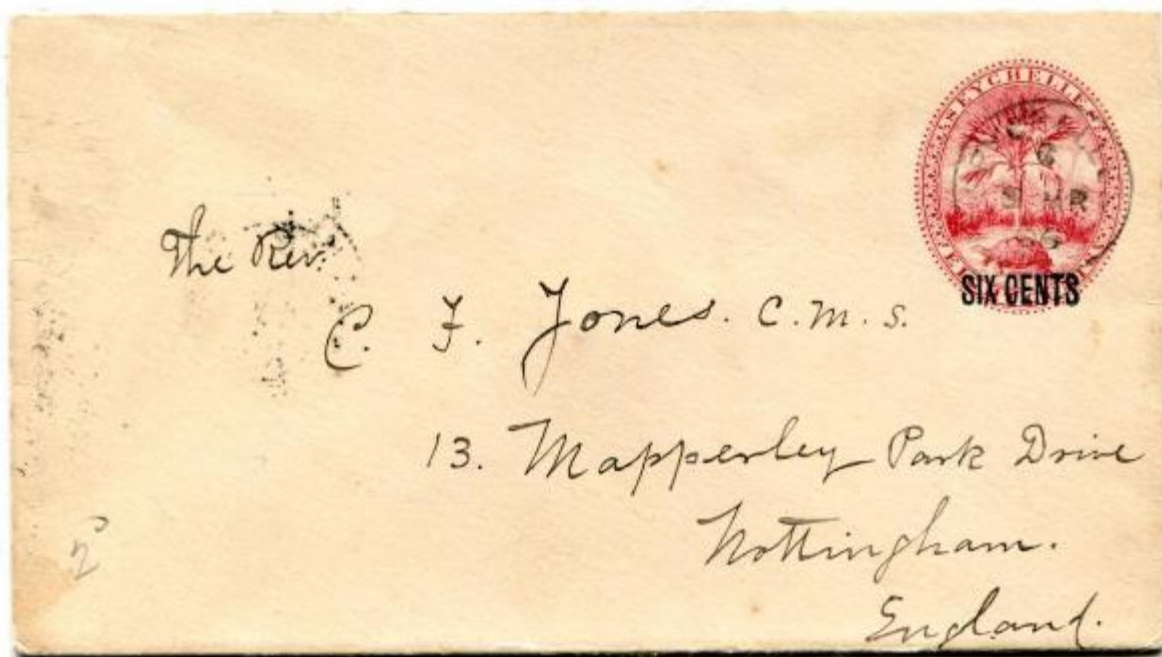 SEYCHELLES
SIX CENTS
The Rev.
C. F. Jones. C.M.S.
13. Mapperley Park Drive
Nottingham.
England.
2